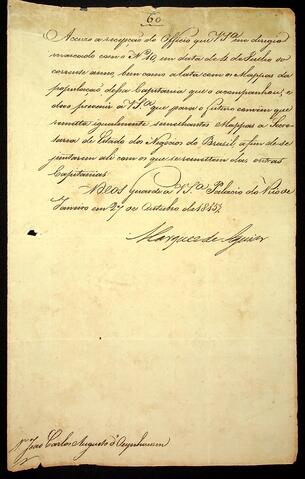 60
Accuso a recepção do Officio que V Sa me dirigio
marcado com o No 10, em data de 4 de Julho do
corrente anno, bem como a data com o Mappa da
população dessa Capitania que o acompanhou; e
devo prevenir a V Sa que para o futuro convém que
remetta igualmente semelhantes Mappas a Secre-
taria de Estado dos Negocios do Brasil, a fim de se
juntarem até com o que se remettem das outras
Capitanias
Deos Guarde a V Sa Palacio do Rio de
Janeiro em 27 de Outubro de 1815
Marquez de Aguiar
Snr João Carlos Augusto d'Oeynhausen